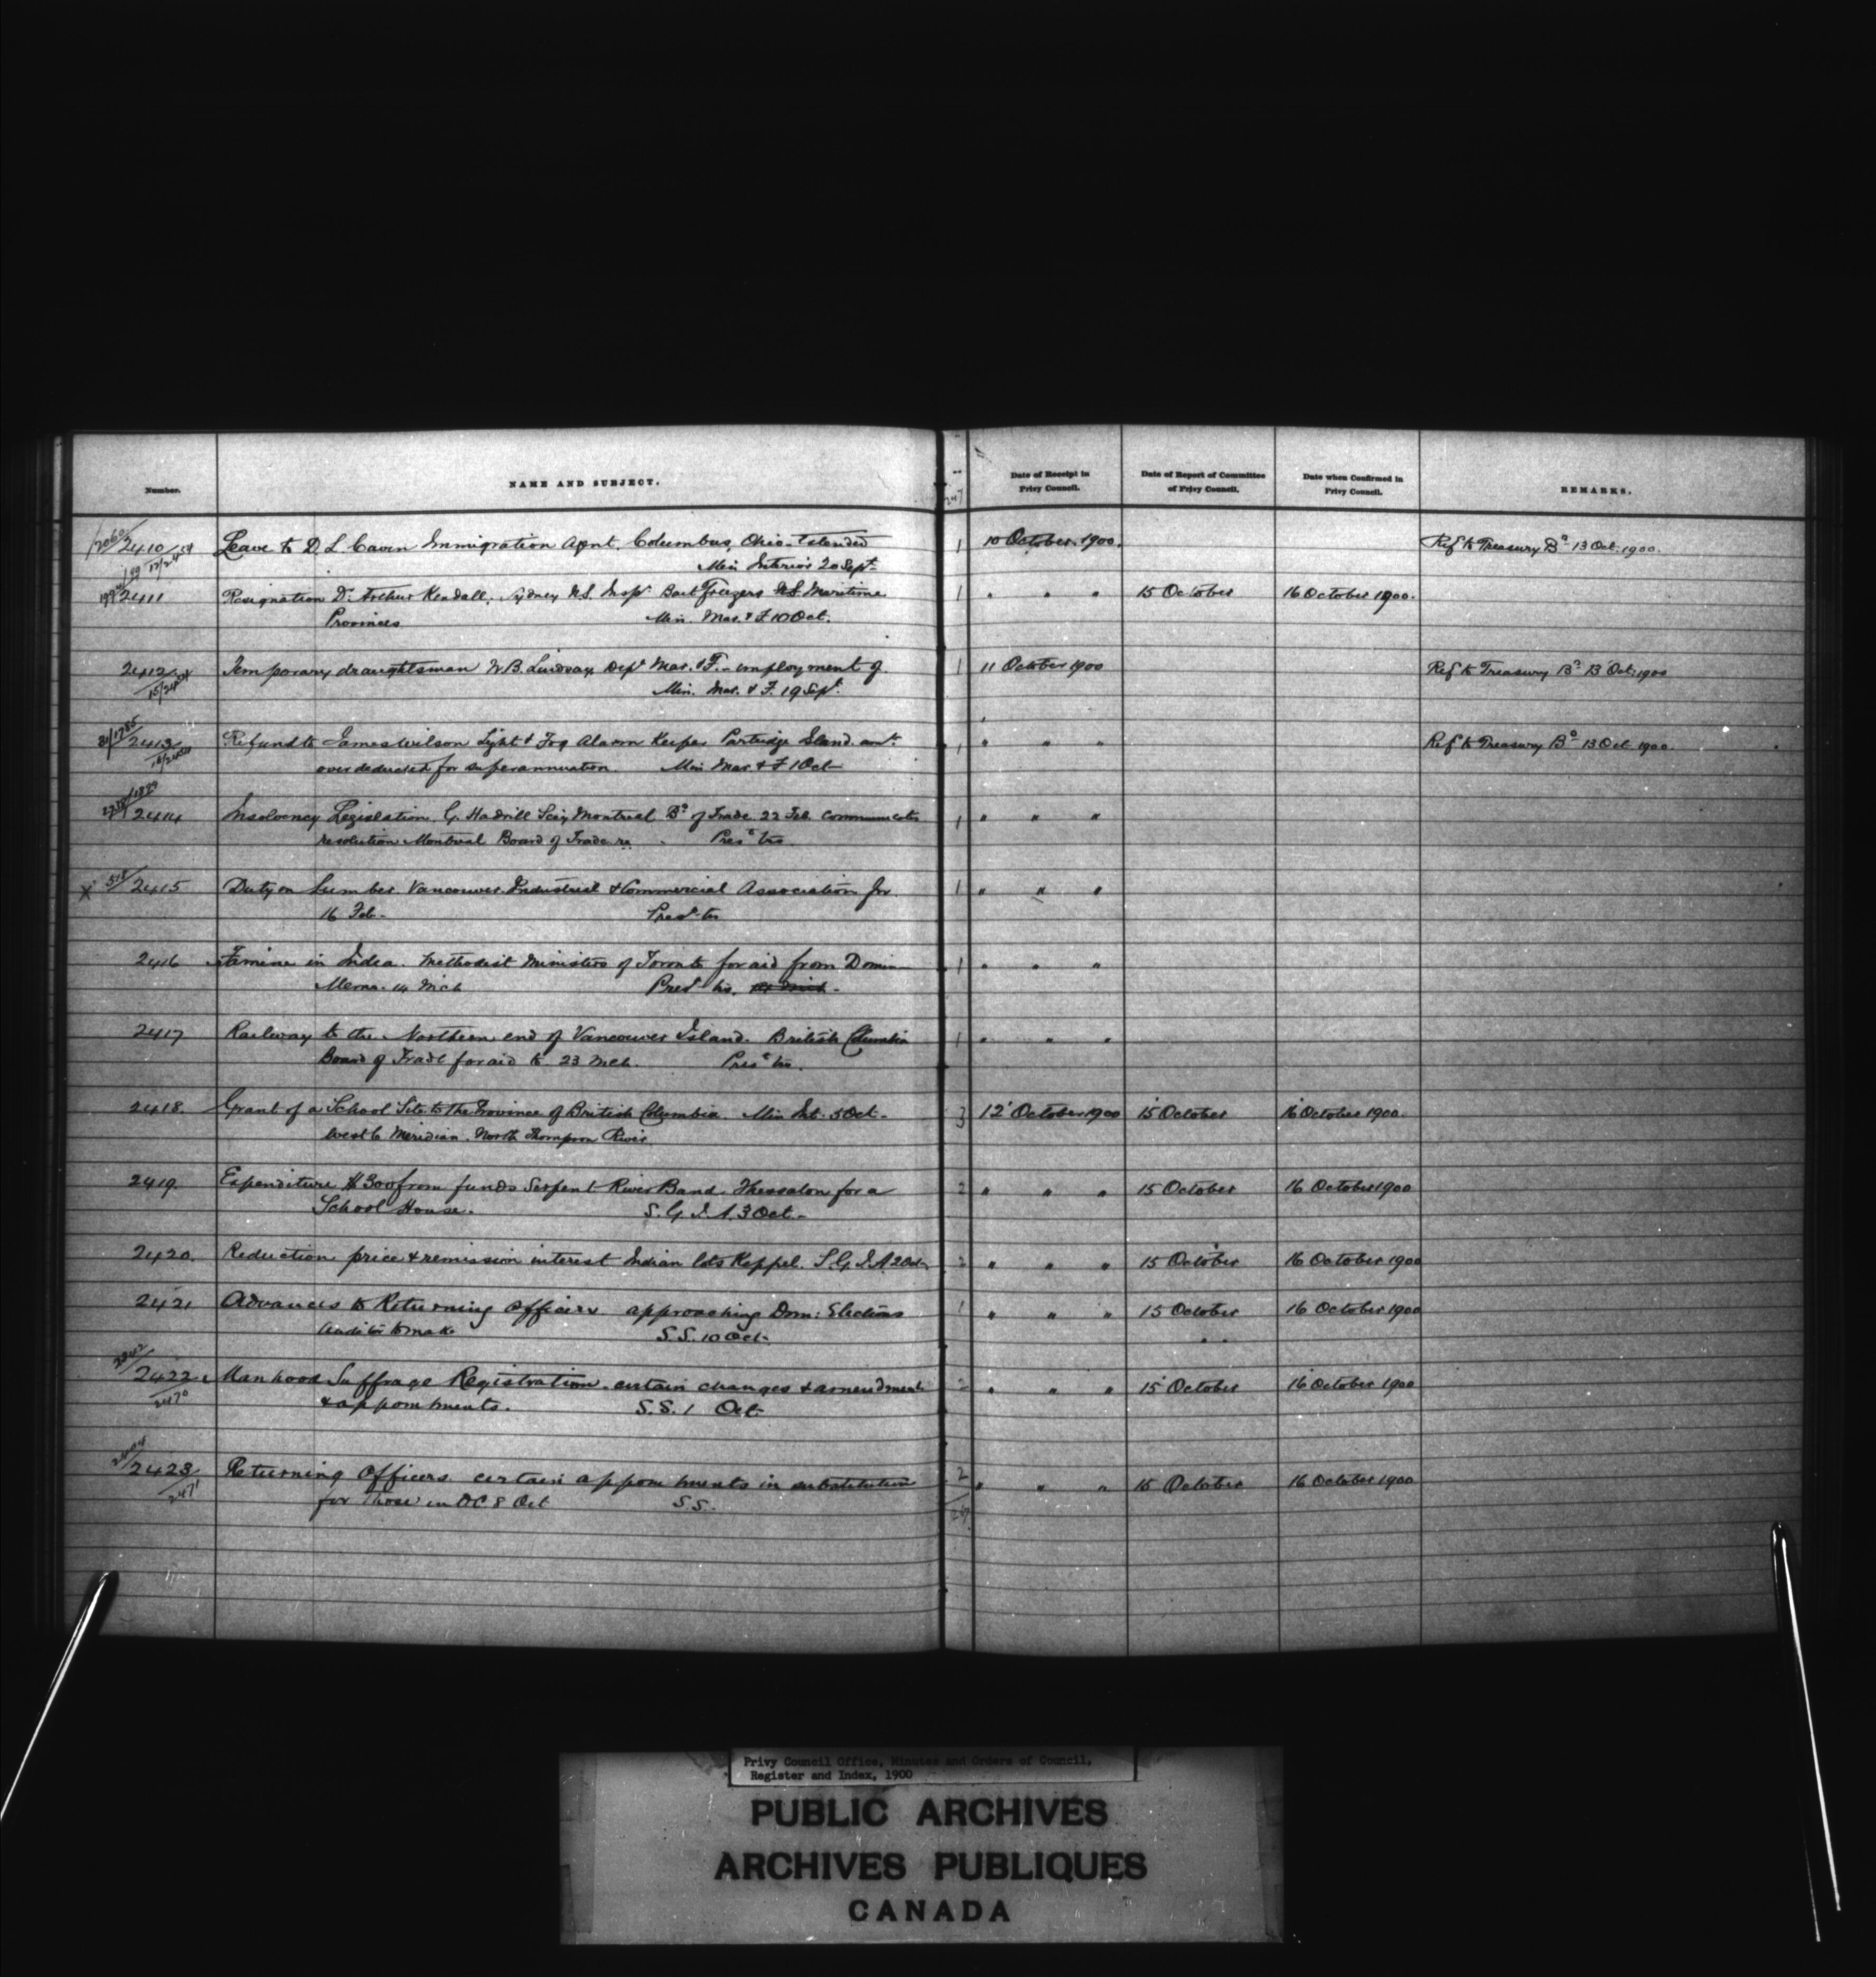 Number. NAME AND SUBJECT. Date of Receipt in Privy Council. Date of Report of Committee of Privy Council. Date when Confirmed in Privy Council. REMARKS.
2410 Leave to D. L. Caven Immigration Agent, Columbus, Ohio extended 1 10 October 1900. Ref to Treasury Bd 13 Oct. 1900.
Min Interior 20 Sept
2411 Resignation Dr Arthur Kendall, Sydney N.S. Inspr Bait Freezers N.S. Maritime 1 " " " 15 October 16 October 1900.
Provinces Min. Mar. & F 10 Oct.
2412 Temporary draughtsman W. B. Lindsay Dept Mar. & F. - employment of 1 11 October 1900 Ref to Treasury Bd 13 Oct. 1900
Min. Mar. & F. 19 Sept.
2413 Refund to James Wilson Light & Fog Alarm Keeper Partridge Island amt. 1 " " " Ref to Treasury Bd 13 Oct 1900.
over deducted for superannuation. Min Mar. & F 1 Oct
2414 Insolvency Legislation. G. Hadrill Secy Montreal Bd of Trade 22 Feb. communicates 1 " " "
resolution Montreal Board of Trade re.
X 2415 Duty on Lumber Vancouver Industrial & Commercial Association for 1 " " "
16 Feb.
2416 Famine in India. Methodist Ministers of Toronto for aid from Domin 1 " " "
Memo. 14 Mch
2417 Railway to the Northern end of Vancouver Island. British Columbia 1 " " "
Board of Trade for aid to 23 Mch.
2418. Grant of a School Site to the Province of British Columbia. Min Int. 5 Oct. 3 12 October 1900 15 October 16 October 1900.
West 6 Meridian. North Thompson River
2419. Expenditure $300 from funds Serpent River Band. Thessalon for a 2 " " " 15 October 16 October 1900
School House. S. G. I. A. 3 Oct.
2420. Reduction price & remission interest Indian lots Keppel. S. G. I. A. 2 Oct. 2 " " " 15 October 16 October 1900
2421 Advances to Returning Officers approaching Dom: Elections 1 " " " 15 October 16 October 1900
Auditor to make S.S. 10 Oct.
2422 Manhood Suffrage Registration. certain changes & amendments 2 " " " 15 October 16 October 1900
2470 & appointments. S.S. 1 Oct.
2423 Returning Officers. certain appointments in substitution 2 " " " 15 October 16 October 1900
2471 for those in OC 8 Oct S.S.
Privy Council Office, Minutes and Orders of Council,
Register and Index, 1900
PUBLIC ARCHIVES
ARCHIVES PUBLIQUES
CANADA